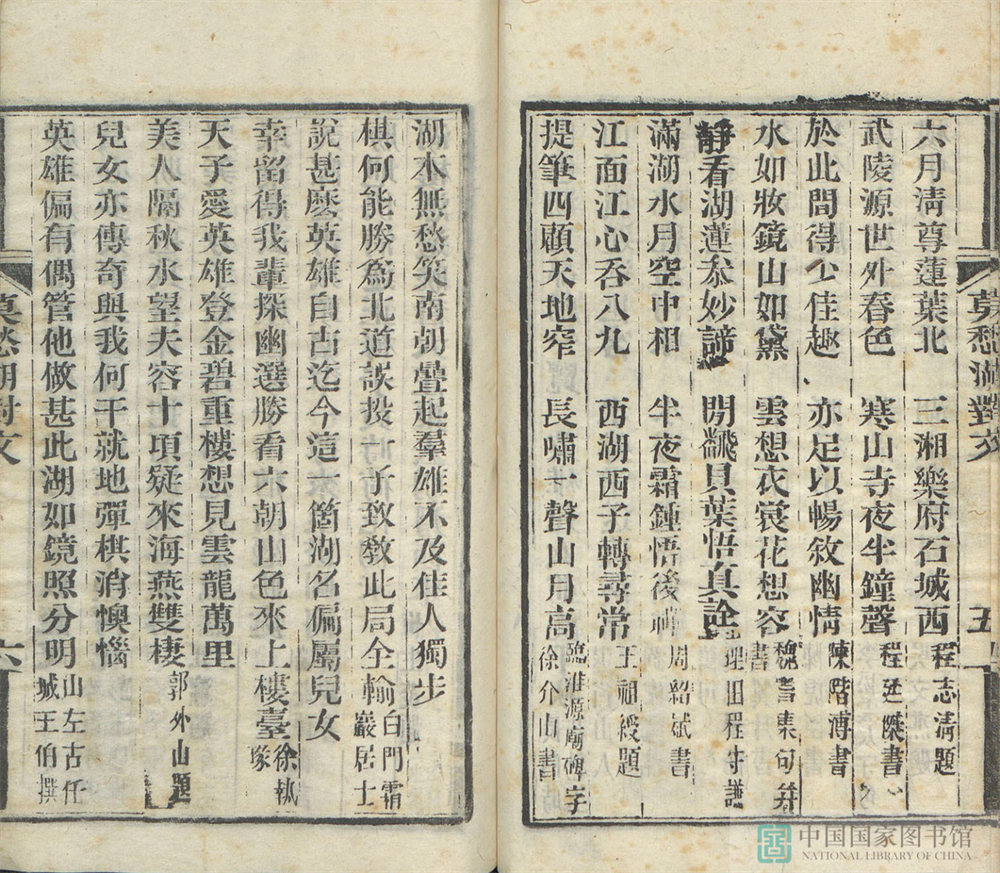 六月清尊蓮葉北　三湘樂府石城西　程志清題
武陵源世外春色　寒山寺夜半鐘聲　程廷傑書
於此間得少佳趣　亦足以暢敘幽情　陳階溥書
水如妝鏡山如黛　雲想衣裳花想容　集句并書
靜看湖蓮叅妙諦　閒繙貝葉悟真詮　程守謙
滿湖水月空中相　半夜霜鍾悟後禪　周紹斌書
江面江心吞八九　西湖西子轉尋常　王祖綬題
提筆四顧天地窄　長嘯一聲山月高　臨淮源廟碑字　徐介山書
莫愁湖對文　五
湖本無愁笑南朝疊起羣雄不及佳人獨步
棋何能勝爲北道誤投一子致教此局全輸　白門霜巖居士
說甚麽英雄自古迄今這一箇湖名偏屬兒女
幸留得我輩探幽選勝看六朝山色來上樓臺　徐執瑑
天子愛英雄登金碧重樓想見雲龍萬里
美人隔秋水望夫容十頃疑來海燕雙棲　郭外山題
兒女亦傳奇與我何干就地彈棋消懊惱
英雄偏有偶管他做甚此湖如鏡照分明　山左古任城王伯撰
莫愁湖對文　六
中国国家图书馆
NATIONAL LIBRARY OF CHINA